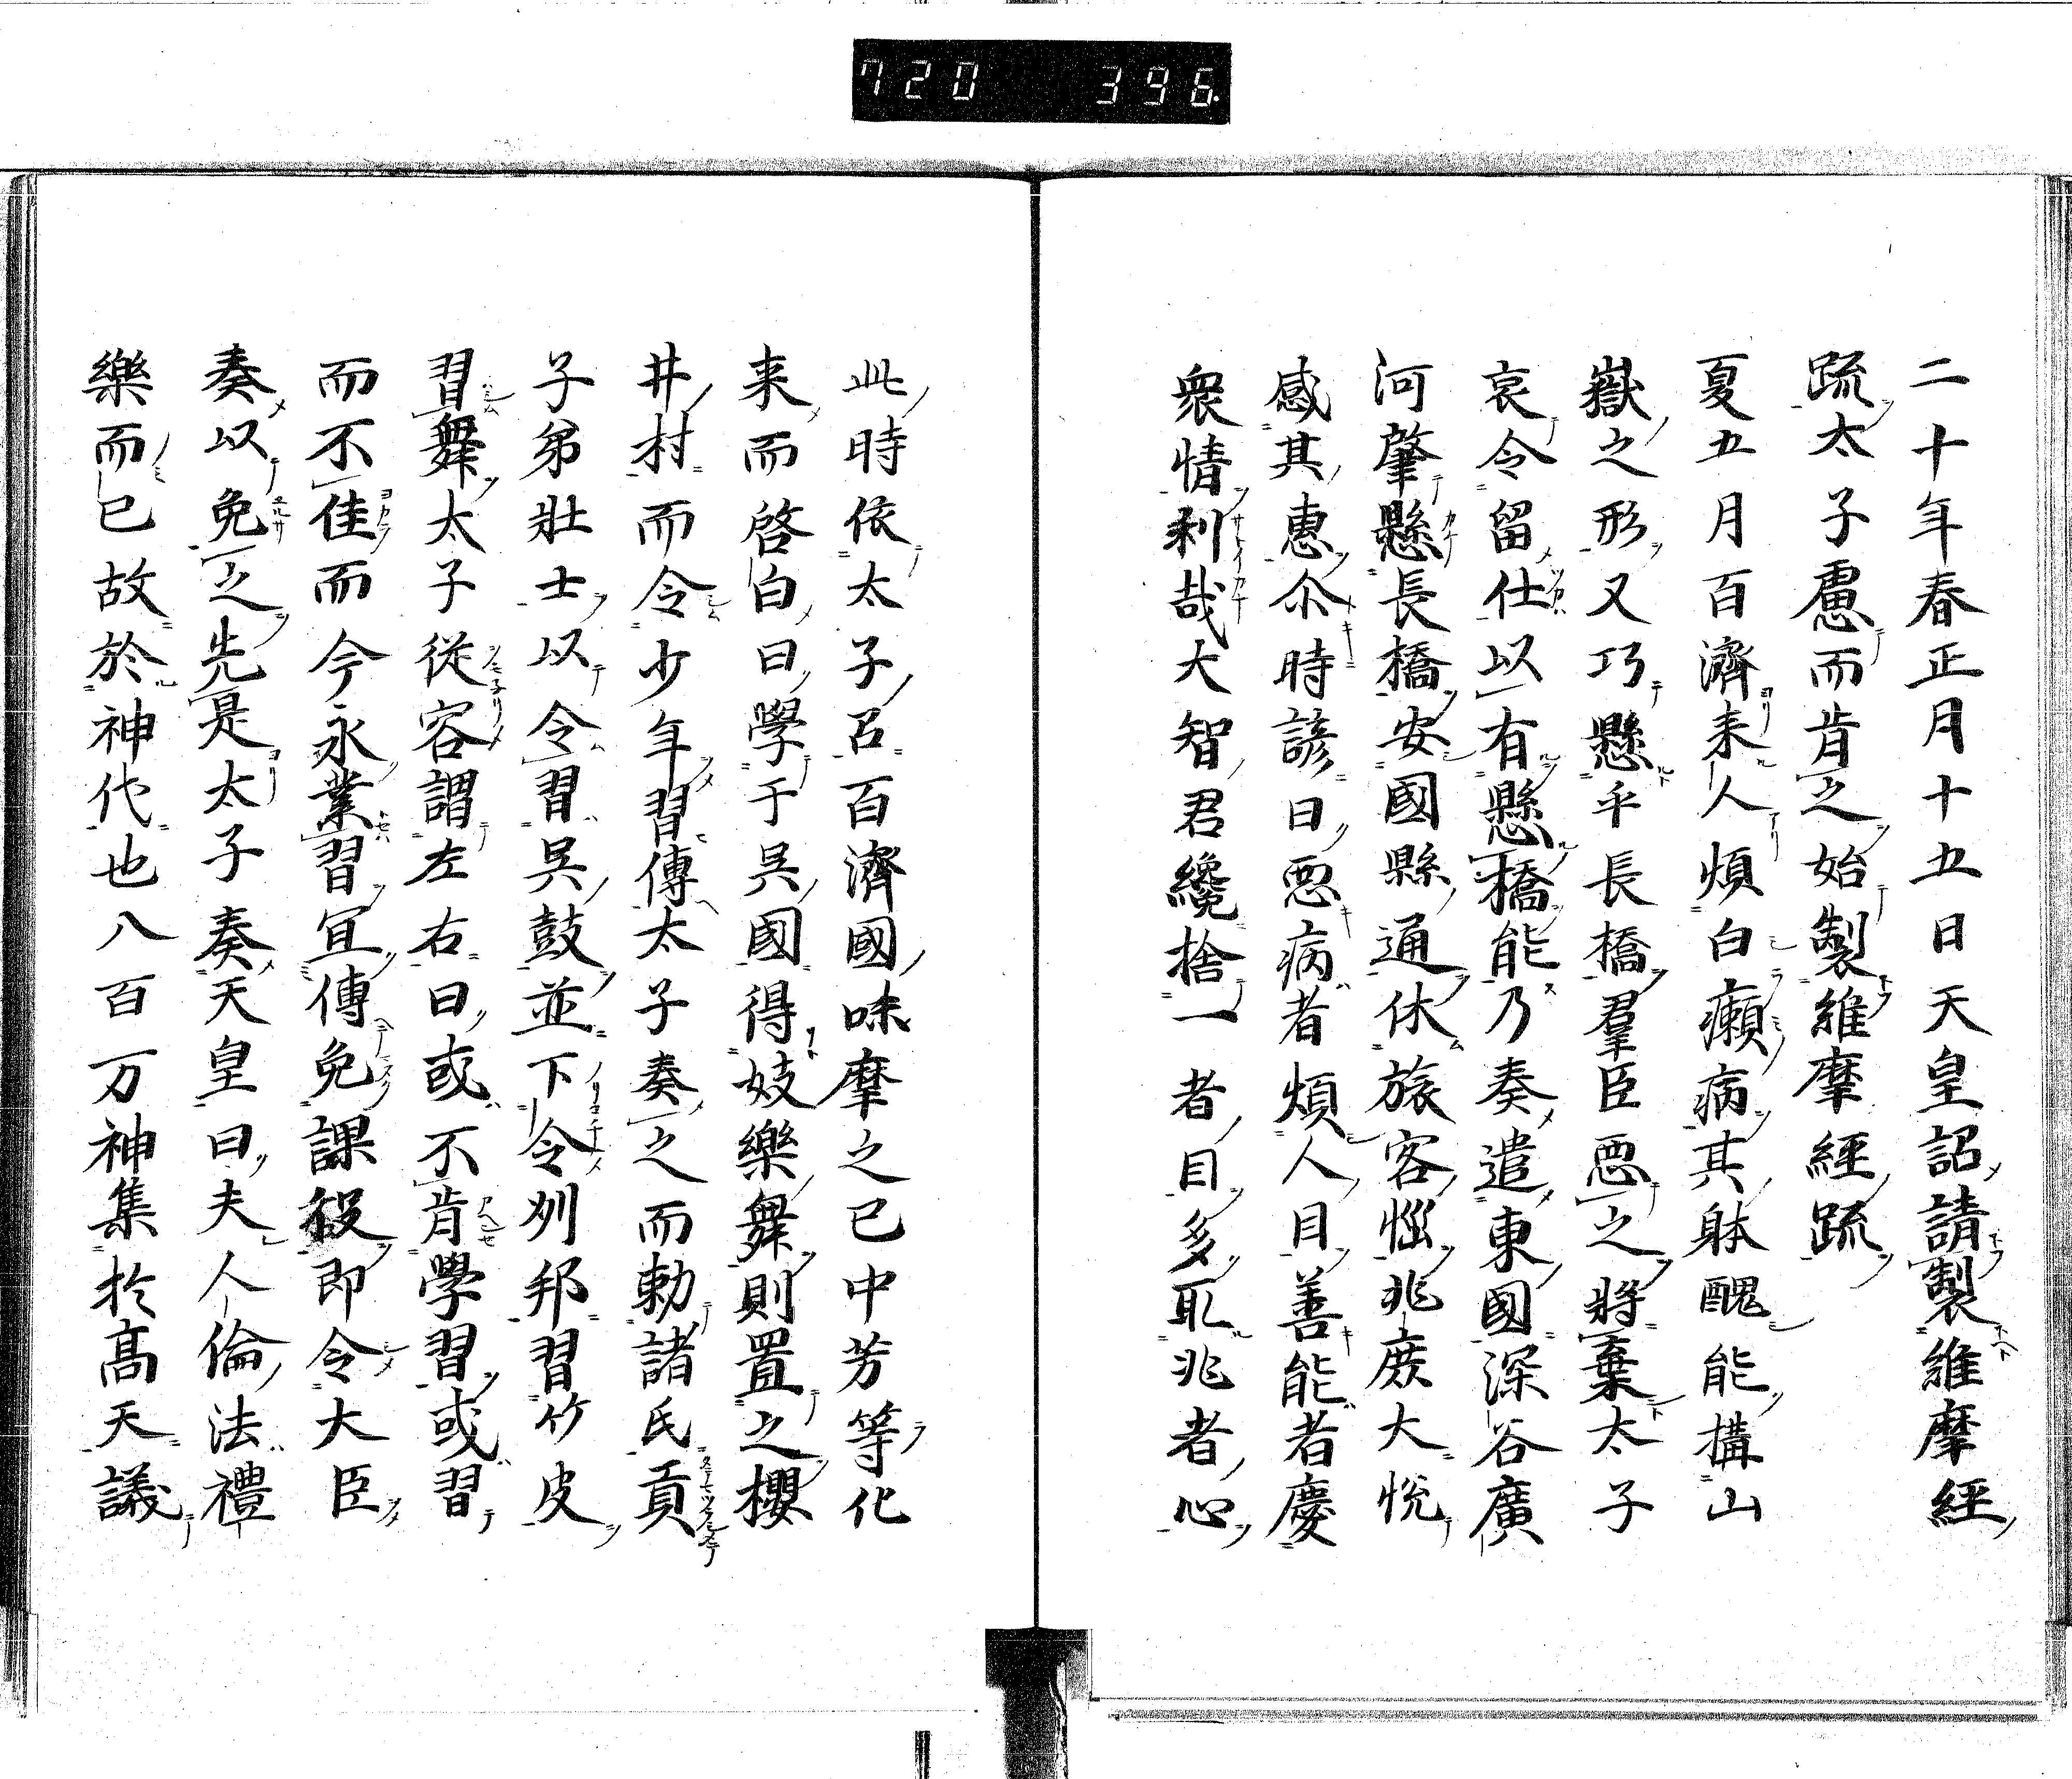 720 396.
二十年春正月十五日天皇詔請製維摩經
䟽太子慮而肯之始製維摩經䟽
夏五月百濟来人煩白癩病其躰醜能搆山
嶽之形又巧懸乎長橋羣臣悪之将棄太子
哀令留仕以有懸橋能乃奏遣東國深谷廣
河肇懸長橋安國縣通休旅客惱兆庻大悦
感其惠尒時諺曰悪病者煩人目善能者慶
衆情利哉大智君纔捨一者目多取兆者心
此時依太子召百濟國味摩之已中芳等化
来而啓白曰學于吳國得妓樂舞則置之櫻
井村而令少年習傳太子奏之而勅諸氏貢
子弟壯士以令習吳鼓並下令刕邦習竹皮
習舞太子從容謂左右曰或不肯學習或習
而不佳而今永業習冝傳免課役即令大臣
奏以免之先是太子奏天皇曰夫人倫法禮
樂而已故於神代也八百万神集於髙天議